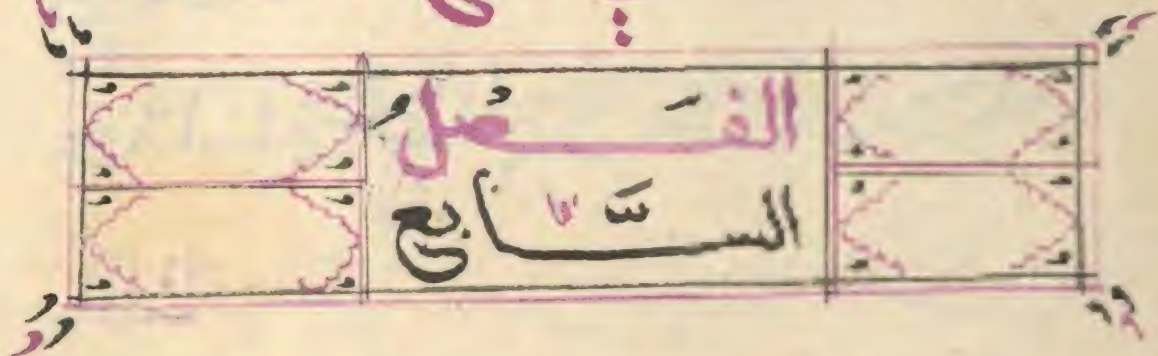 الفَصْلُ
السَّابع